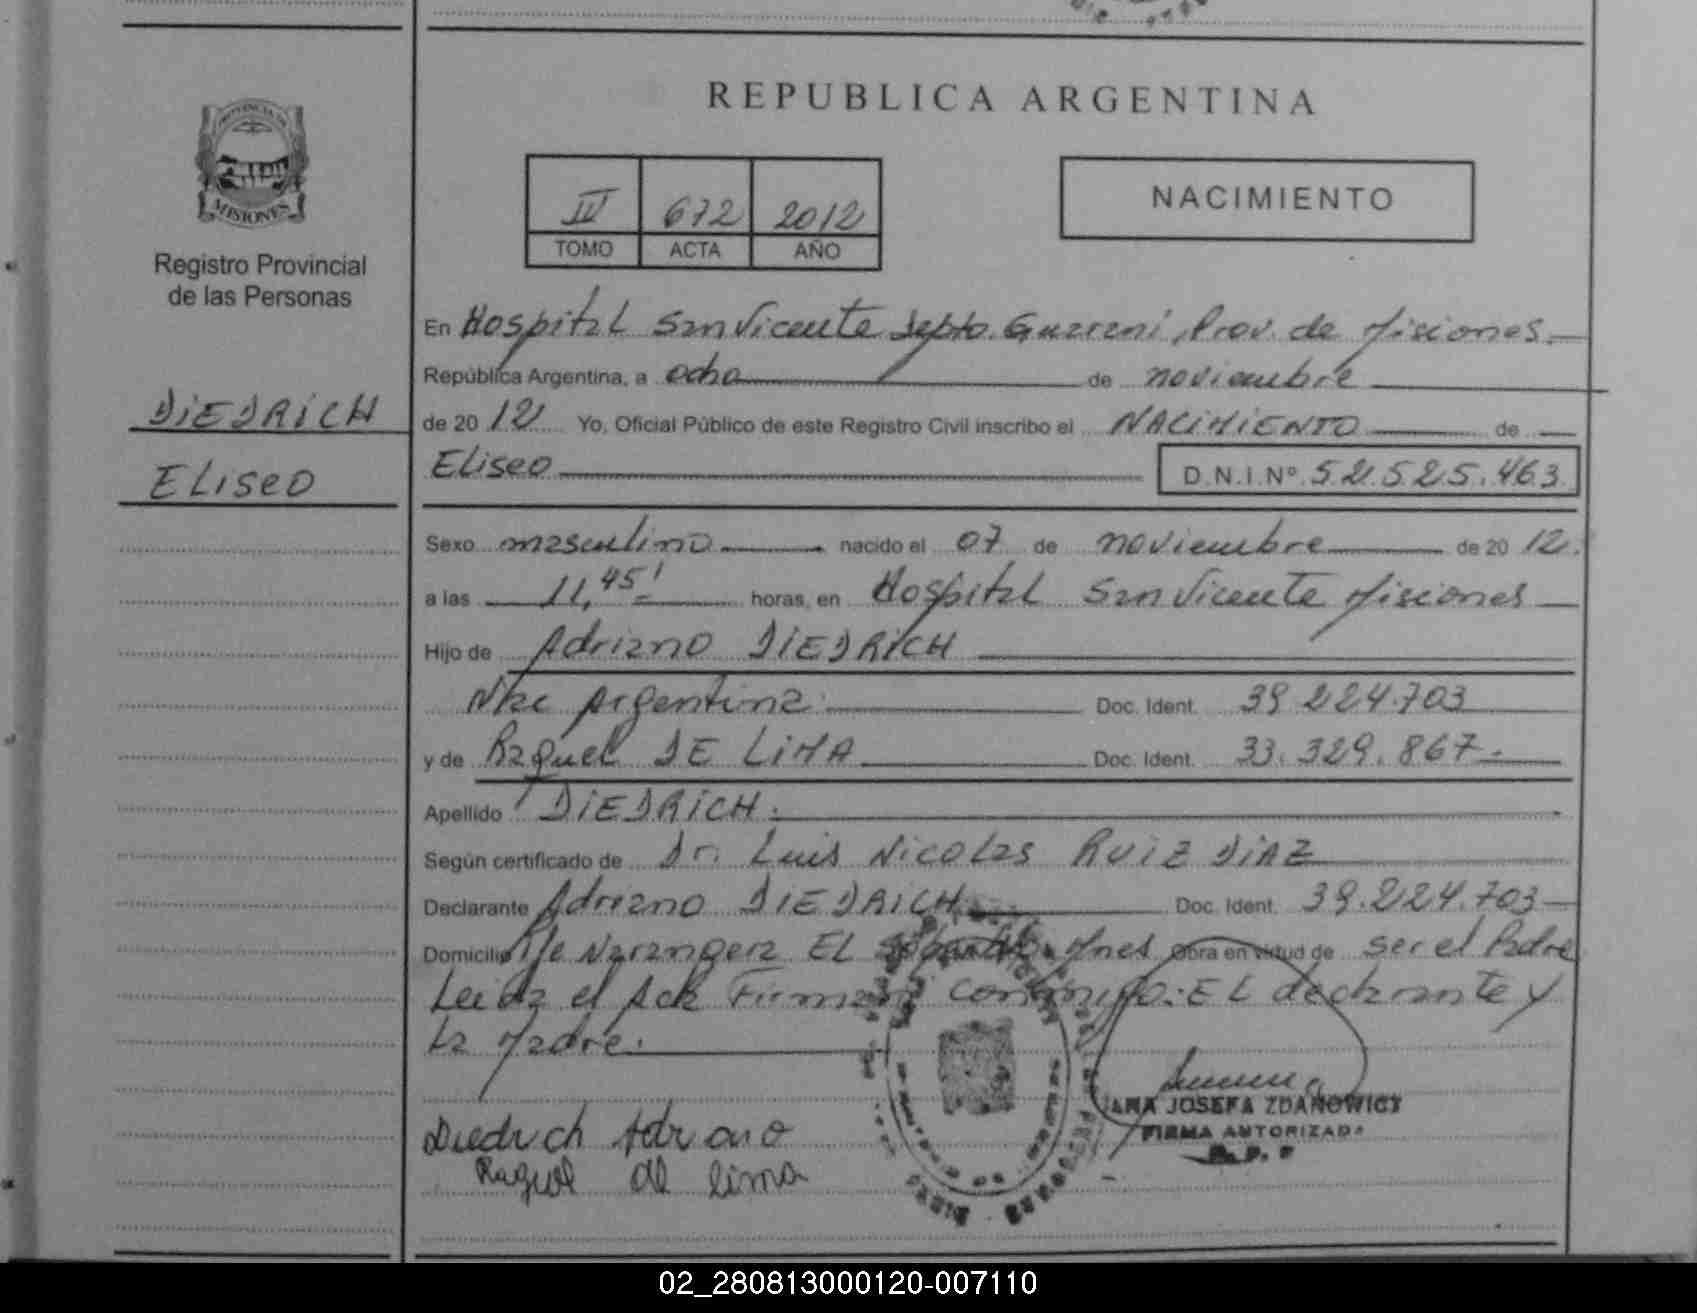 REPUBLICA ARGENTINA
PROVINCIA DE
MISIONES
Registro Provincial
de las Personas
DIEDRICH
ELISEO
IV 672 2012
TOMO ACTA AÑO
NACIMIENTO
En Hospital San Vicente Depto. Guarani, Prov. de Misiones.
República Argentina, a ocho de noviembre
de 2012 Yo, Oficial Público de este Registro Civil inscribo el NACIMIENTO de
Eliseo D.N.I.Nº 52.525.463
Sexo masculino nacido el 07 de noviembre de 2012.
a las 11,45' horas, en Hospital San Vicente Misiones
Hijo de Adriano DIEDRICH
Nac Argentina. Doc. Ident. 39.224.703
y de Raquel DE LIMA Doc. Ident. 33.329.867.
Apellido DIEDRICH.
Según certificado de Dr. Luis Nicolas RUIZ DIAZ
Declarante Adriano DIEDRICH Doc. Ident. 39.224.703
Domicilio EL Mnes Obra en virtud de ser el Padre
Leida el Acta Firman conmigo: EL declarante y
La Madre.
Diedrich Adriano
Raquel de lima
ANA JOSEFA ZDANOWICZ
FIRMA AUTORIZADA
02_280813000120-007110